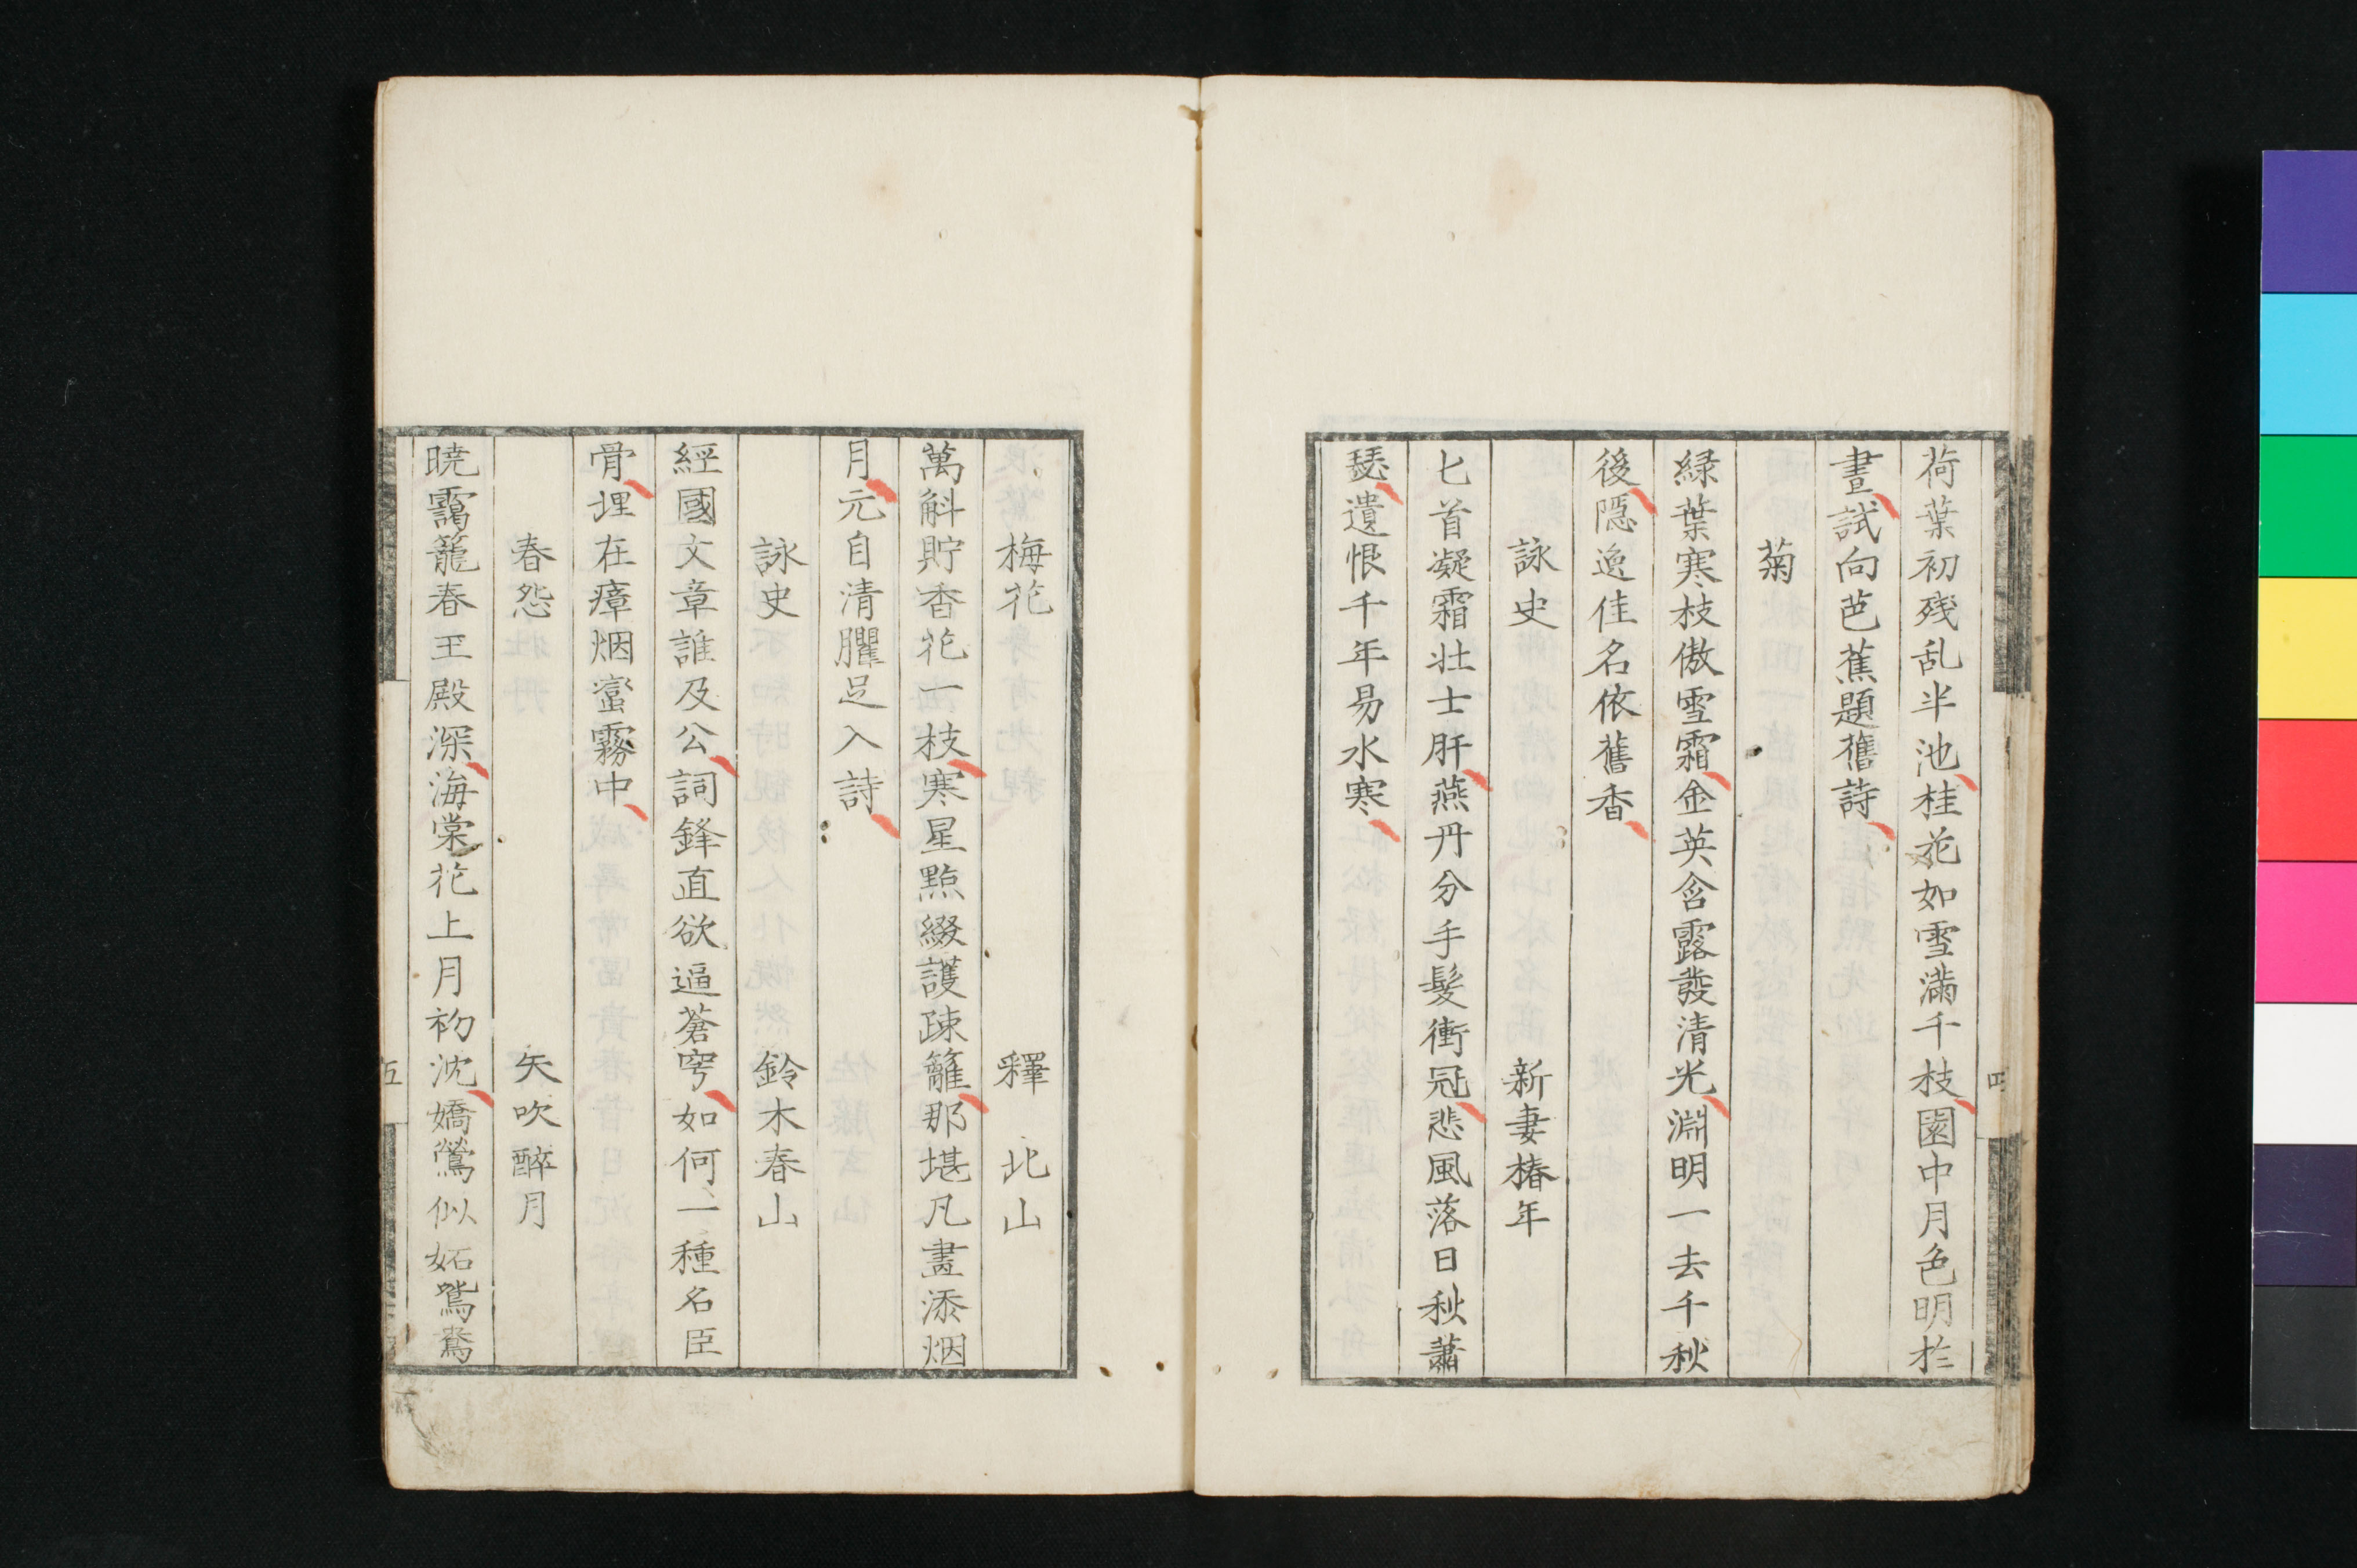 荷葉初残乱半池桂花如雪滿千枝園中月色明於
晝試向芭蕉題舊詩
菊
緑葉寒枝傲雪霜金英含露發清光淵明一去千秋
後隠逸佳名依舊香
詠史 新妻椿年
匕首凝霜壮士肝燕丹分手髮衝冠悲風落日秋蕭
瑟遺恨千年易水寒
四
梅花 釋 北山
萬斛貯香花一枝寒星點綴護疎籬那堪凡畫添烟
月元自清臞足入詩
詠史 鈴木春山
經國文章誰及公詞鋒直欲逼蒼穹如何一種名臣
骨埋在瘴烟蠻霧中
春怨 矢吹醉月
暁靄籠春玉殿深海棠花上月初沈嬌鶯似妬鴛鴦
五